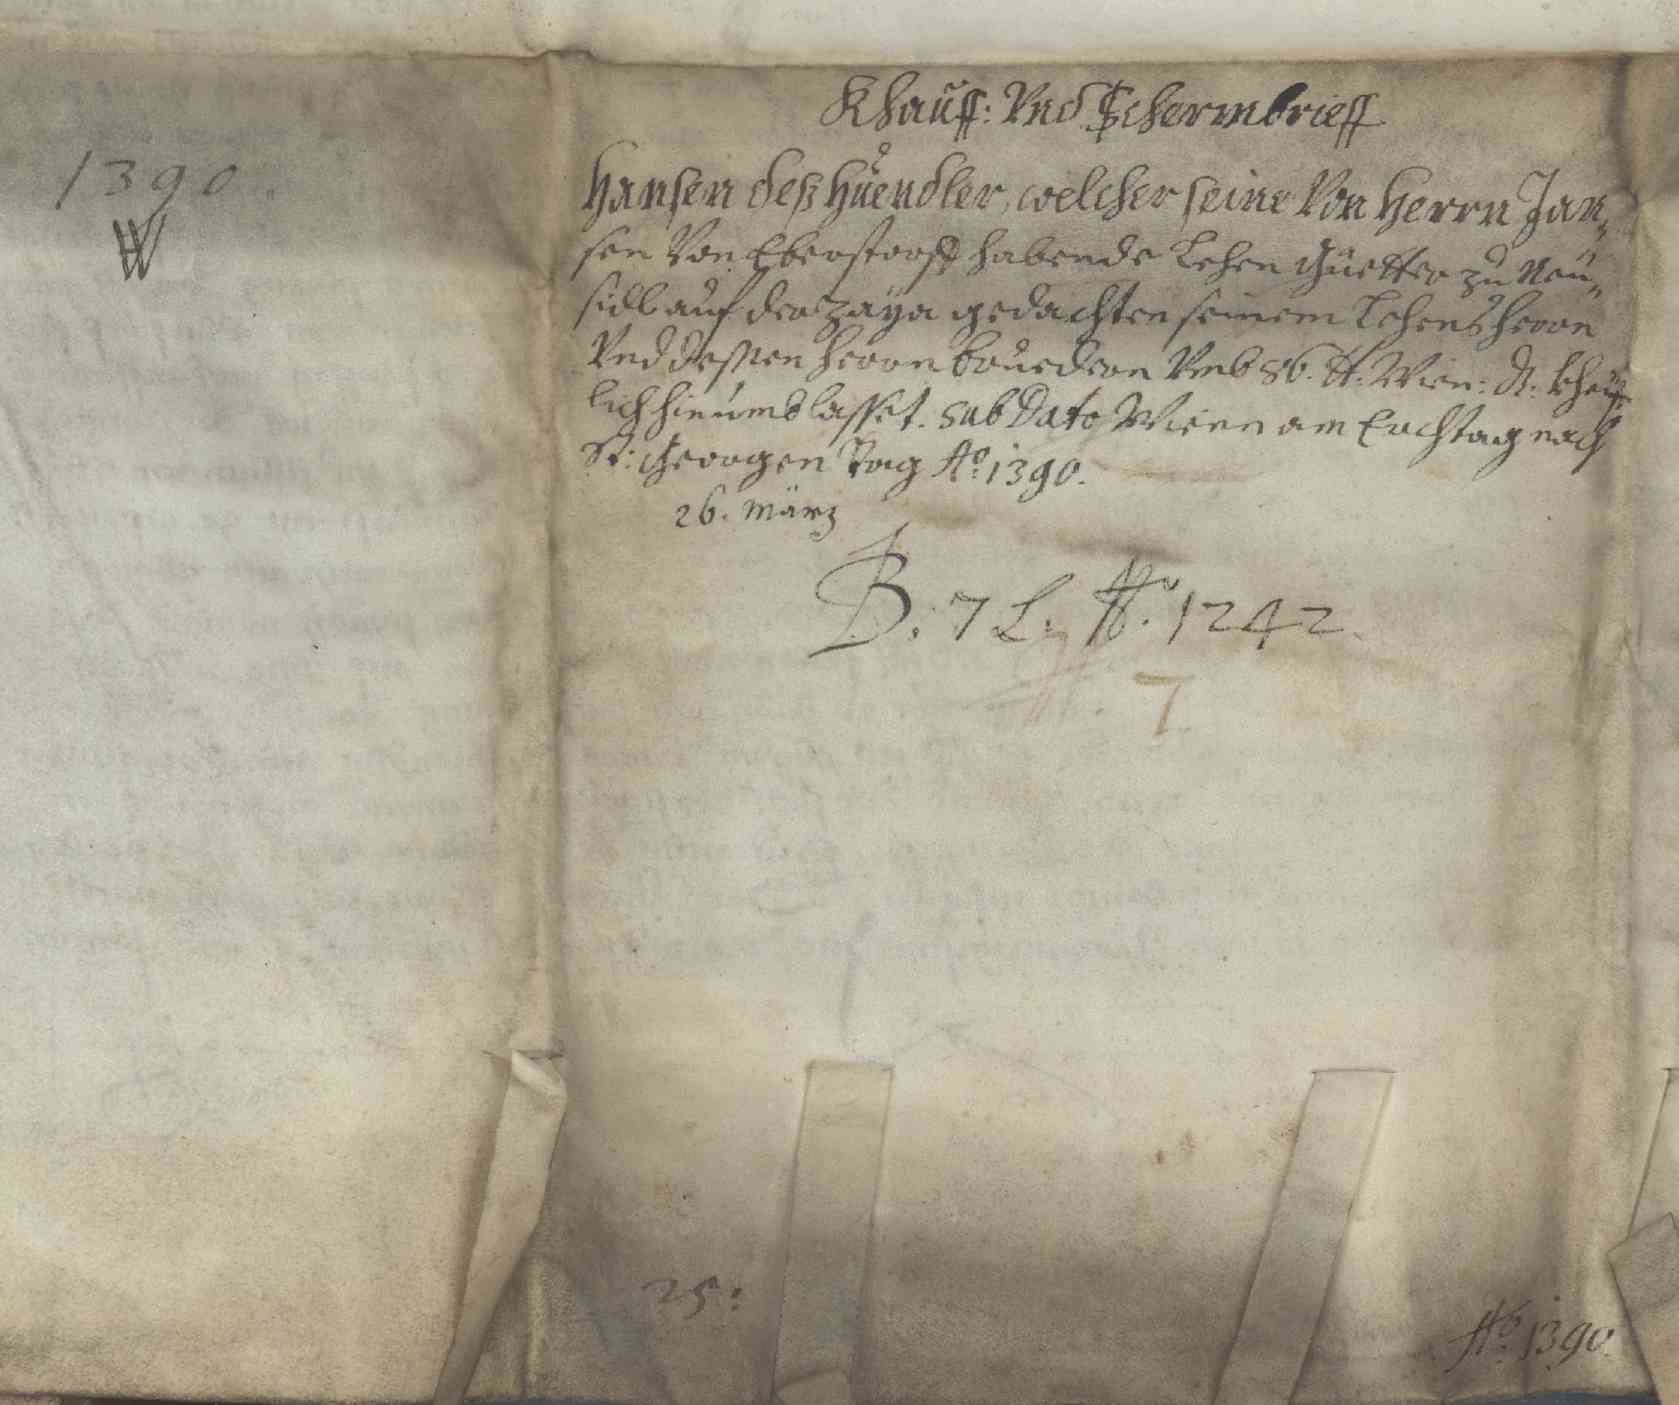 1390.
W
Khauff: Vnd Schermbrieff
Hansen deß Hüendler, welcher seine Von Herrn Jan„
sen Von Eberstorff habende Lehen Güetter zu Neu„
sidl auf der Zaya gedachten seinem Lehensherrn
Vnd dessen herrn bruedern Vmb 86. ℔. Wien: ₰. kheüff„
lich hinumblasset. Sub Dato Wienn am Erchtag nach
St: Georgen Tag Ao. 1390.
26. März
B. 7 L. N. 1242.
N. 7.
25:
Ao. 1390.